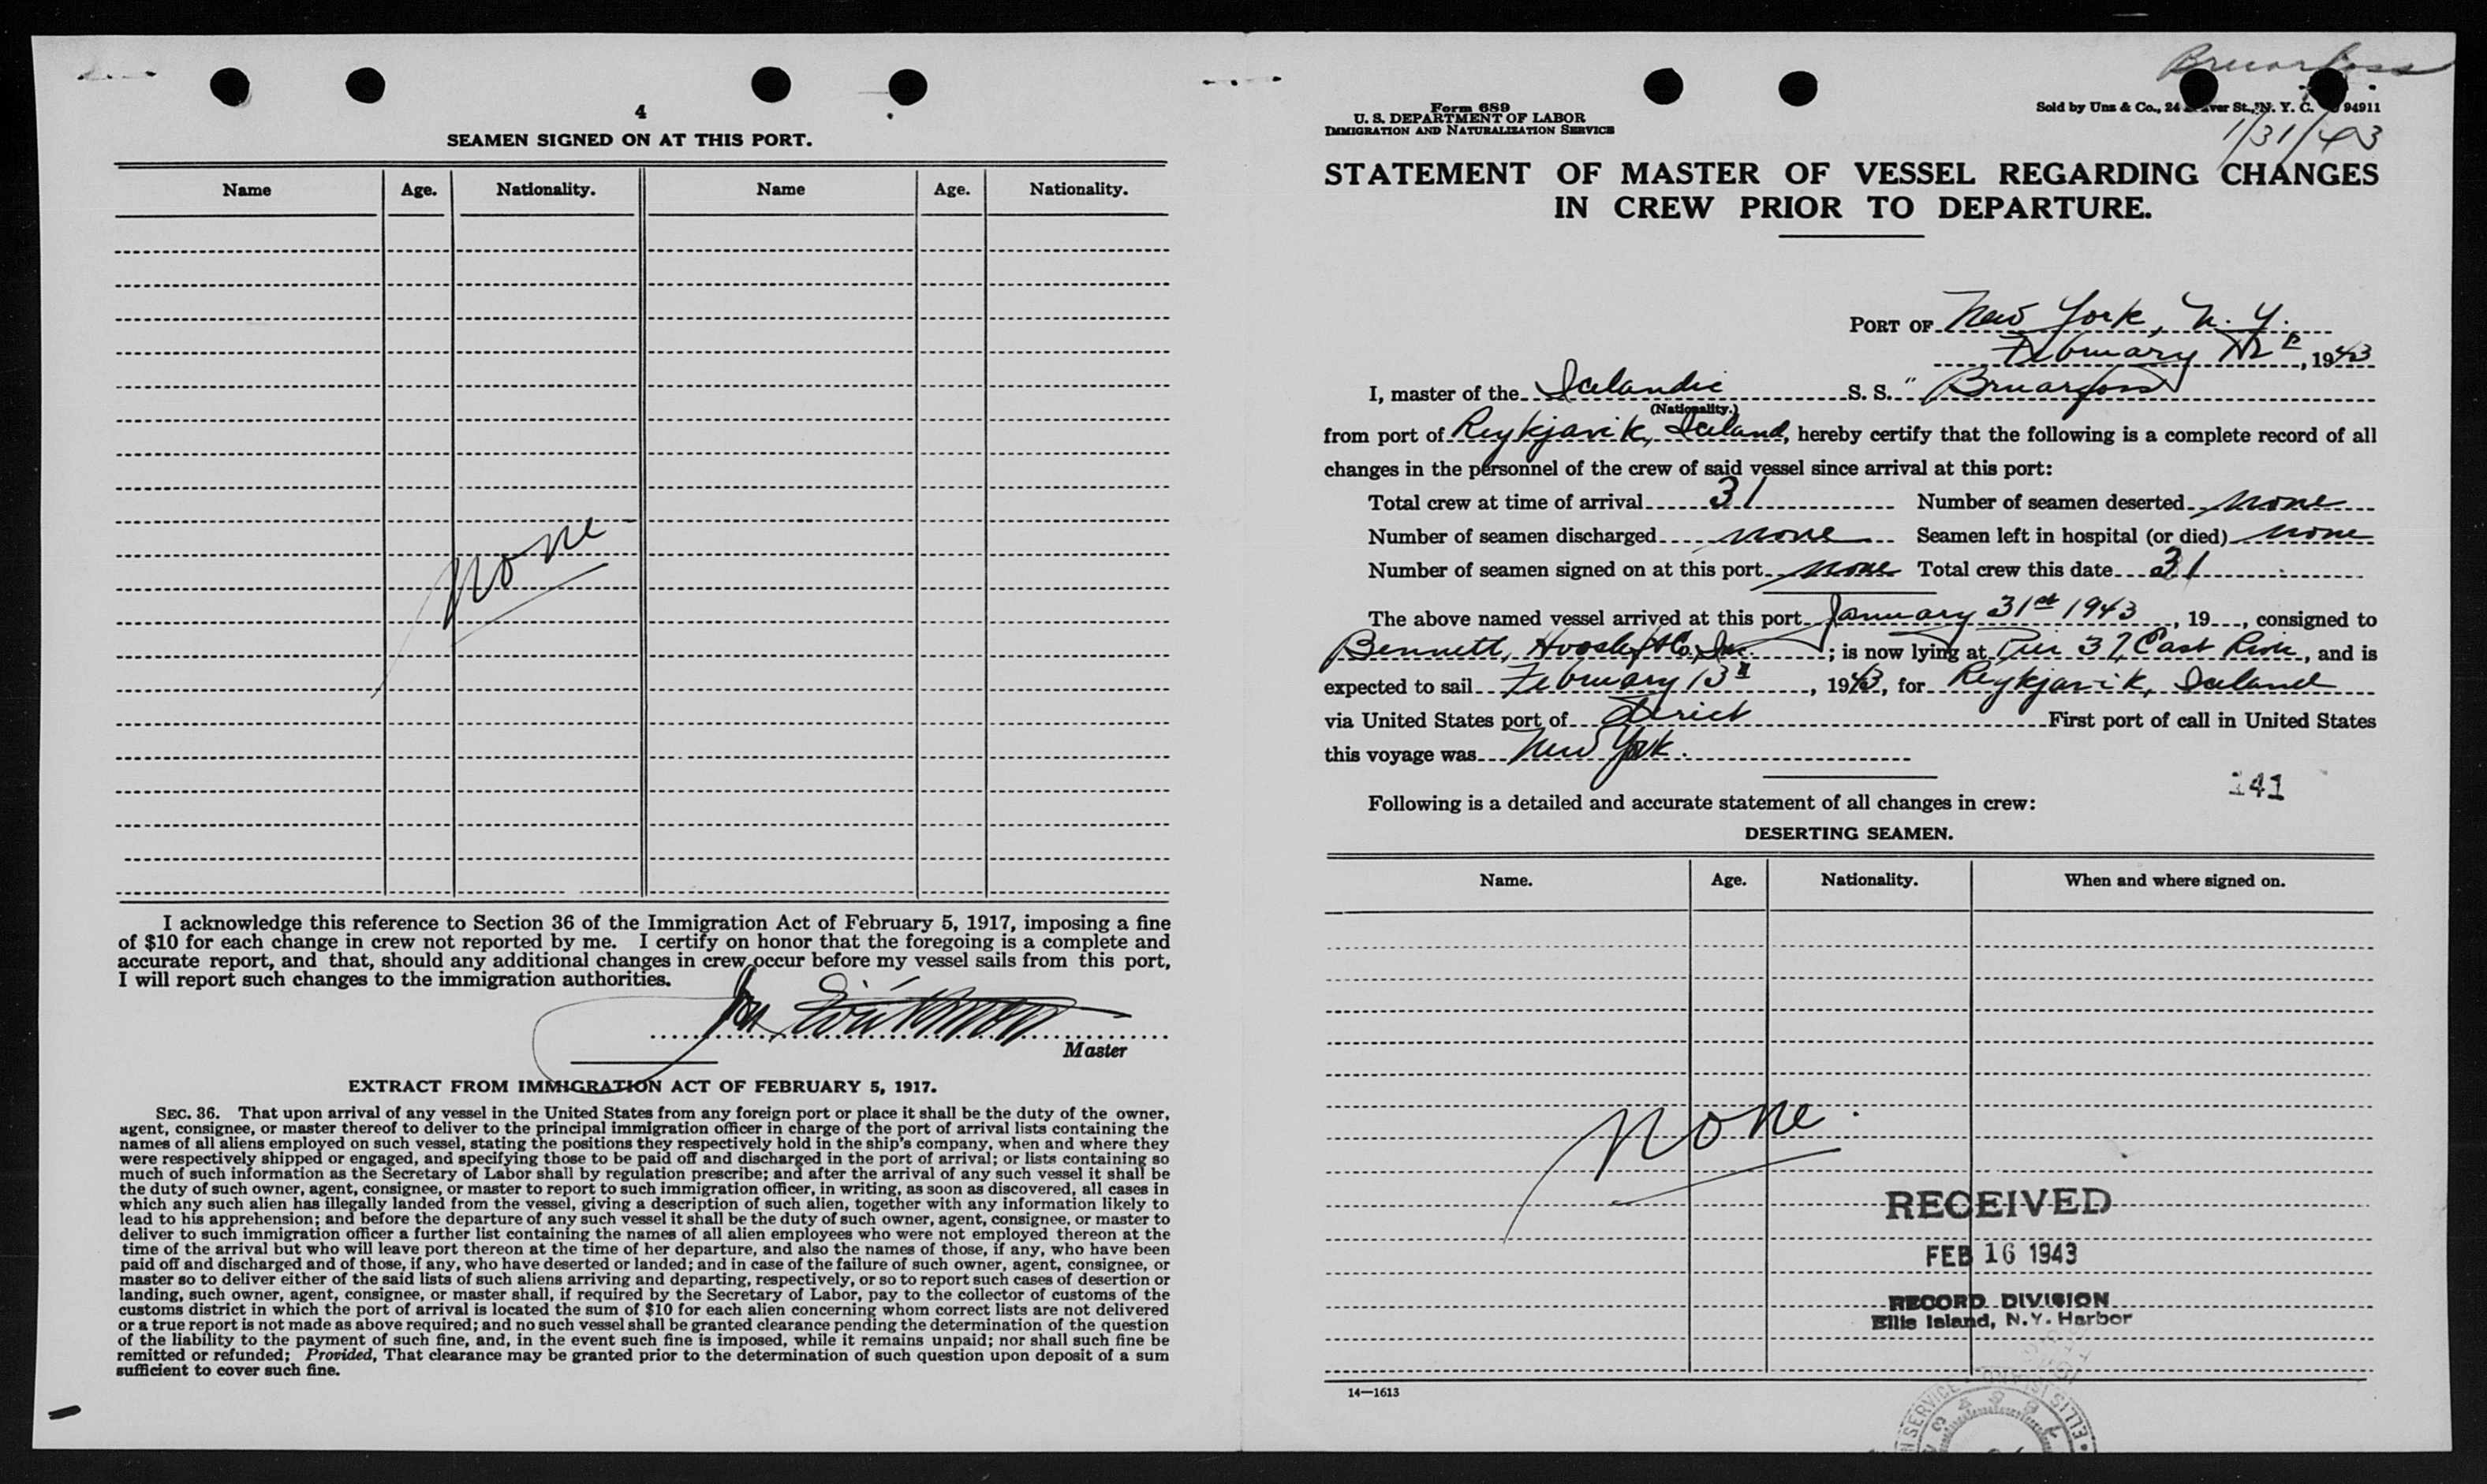 4
SEAMEN SIGNED ON AT THIS PORT.
Name Age. Nationality. Name Age. Nationality.
none
I acknowledge this reference to Section 36 of the Immigration Act of February 5, 1917, imposing a fine
of $10 for each change in crew not reported by me. I certify on honor that the foregoing is a complete and
accurate report, and that, should any additional changes in crew occur before my vessel sails from this port,
I will report such changes to the immigration authorities.
Jón
Master
EXTRACT FROM IMMIGRATION ACT OF FEBRUARY 5, 1917.
SEC. 36. That upon arrival of any vessel in the United States from any foreign port or place it shall be the duty of the owner,
agent, consignee, or master thereof to deliver to the principal immigration officer in charge of the port of arrival lists containing the
names of all aliens employed on such vessel, stating the positions they respectively hold in the ship's company, when and where they
were respectively shipped or engaged, and specifying those to be paid off and discharged in the port of arrival; or lists containing so
much of such information as the Secretary of Labor shall by regulation prescribe; and after the arrival of any such vessel it shall be
the duty of such owner, agent, consignee, or master to report to such immigration officer, in writing, as soon as discovered, all cases in
which any such alien has illegally landed from the vessel, giving a description of such alien, together with any information likely to
lead to his apprehension; and before the departure of any such vessel it shall be the duty of such owner, agent, consignee, or master to
deliver to such immigration officer a further list containing the names of all alien employees who were not employed thereon at the
time of the arrival but who will leave port thereon at the time of her departure, and also the names of those, if any, who have been
paid off and discharged and of those, if any, who have deserted or landed; and in case of the failure of such owner, agent, consignee, or
master so to deliver either of the said lists of such aliens arriving and departing, respectively, or so to report such cases of desertion or
landing, such owner, agent, consignee, or master shall, if required by the Secretary of Labor, pay to the collector of customs of the
customs district in which the port of arrival is located the sum of $10 for each alien concerning whom correct lists are not delivered
or a true report is not made as above required; and no such vessel shall be granted clearance pending the determination of the question
of the liability to the payment of such fine, and, in the event such fine is imposed, while it remains unpaid; nor shall such fine be
remitted or refunded; Provided, That clearance may be granted prior to the determination of such question upon deposit of a sum
sufficient to cover such fine.
Bruarfoss
Form 689
U. S. DEPARTMENT OF LABOR
IMMIGRATION AND NATURALIZATION SERVICE
Sold by Unz & Co., 24 St., N. Y. C. 94911
1/31/43
STATEMENT OF MASTER OF VESSEL REGARDING CHANGES
IN CREW PRIOR TO DEPARTURE.
PORT OF New York, N. Y.
February 12th, 1943
I, master of the Icelandic S. S. "Bruarfoss
(Nationality.)
from port of Reykjavik, Iceland, hereby certify that the following is a complete record of all
changes in the personnel of the crew of said vessel since arrival at this port:
Total crew at time of arrival 31 Number of seamen deserted none
Number of seamen discharged none Seamen left in hospital (or died) none
Number of seamen signed on at this port none Total crew this date 31
The above named vessel arrived at this port January 31st 1943, 19, consigned to
Bennett, & Co., Inc.; is now lying at Pier 37, East River, and is
expected to sail February 13th, 1943, for Reykjavik, Iceland
via United States port of direct First port of call in United States
this voyage was New York.
141
Following is a detailed and accurate statement of all changes in crew:
DESERTING SEAMEN.
Name. Age. Nationality. When and where signed on.
none.
RECEIVED
FEB 16 1943
RECORD DIVISION
Ellis Island, N.Y. Harbor
14—1613
SERVICE ELLIS ISLAND